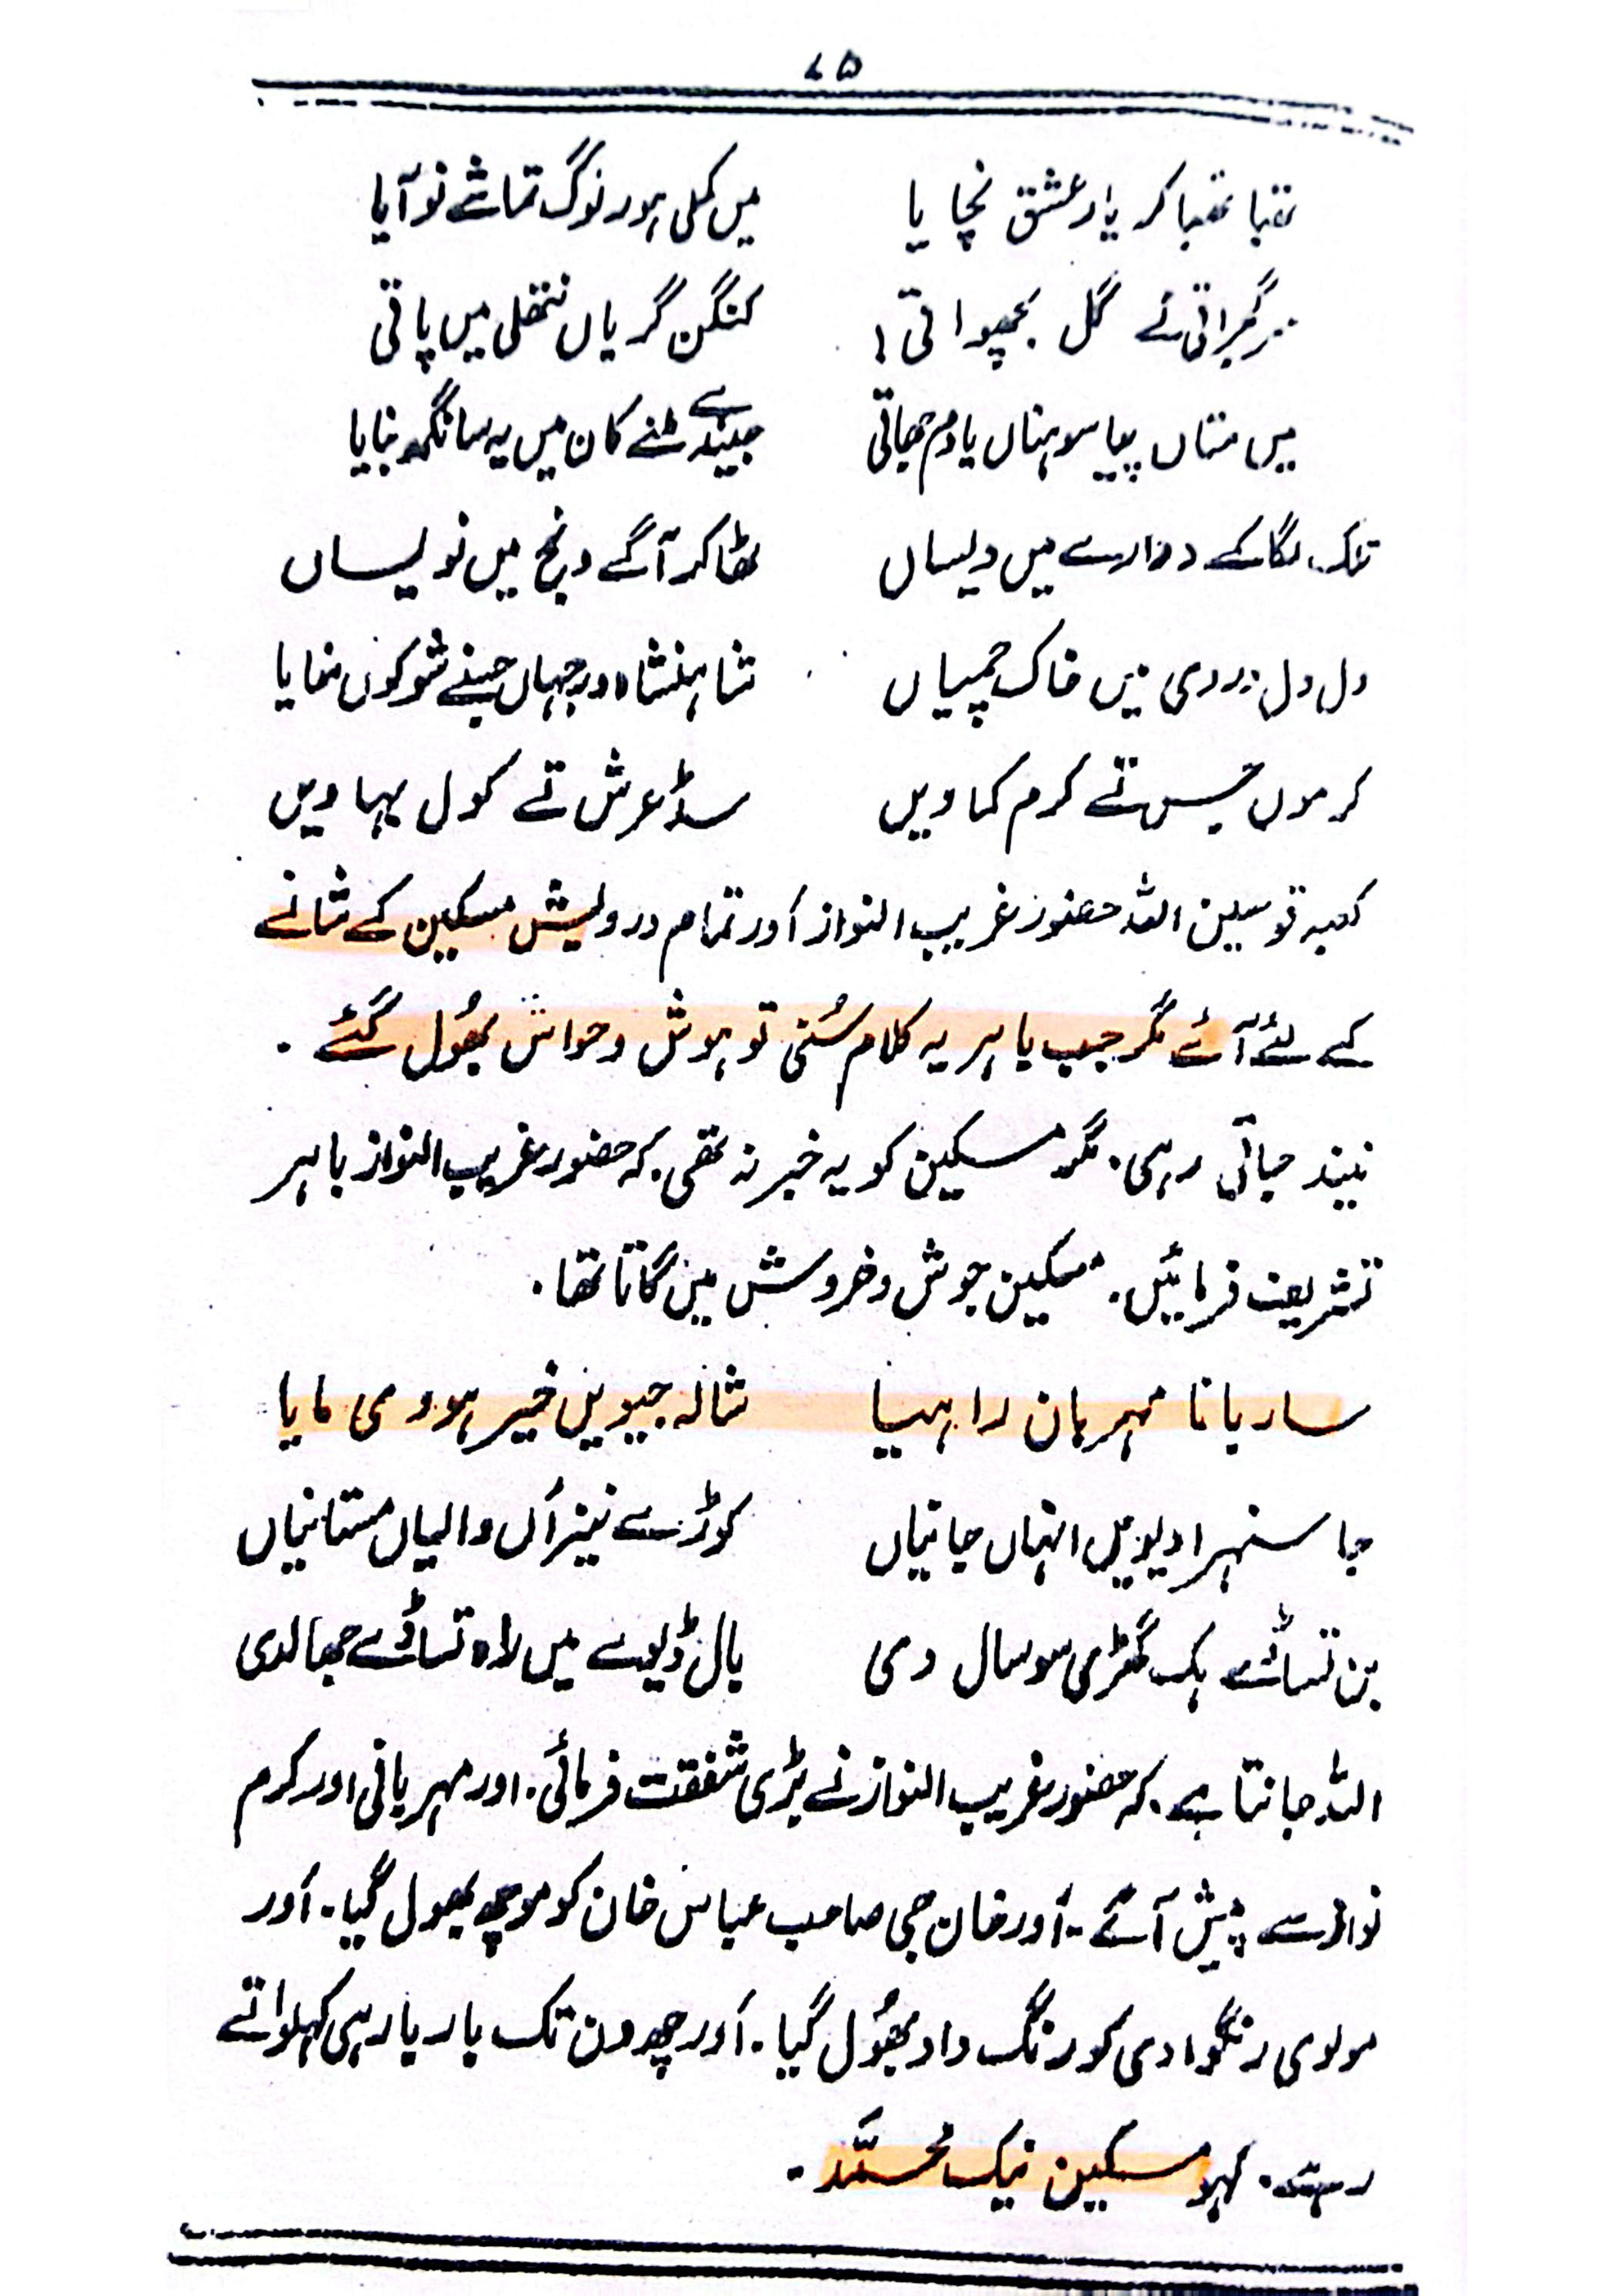 ۷۵
تھیا تھیا کر یار عشق نچا یا میں کملی ہور لوگ تماشے نو آیا
گل کنگن گریاں نتھلی میں پاتی
میں منتاں پیا سوہناں یا دم جھاتی جیندے سے کان میں یہ سانگھ بنایا
تلک لگا کے دوارے میں ویساں ٹھاکر آگے ونج میں نولیساں
دل دل میں خاک چمیاں شاہنشاہ دو جہاں جینے شو کوں
کرموں تے کرم کماویں سڈ عرش تے کول بہاویں
کعبہ قوسین اللہ حضور غریب النواز اور تمام درولیش مسکین کے شانے
کے لئے آئے مگر جب باہر یہ کلام سُنی تو ہوش و حواس بھُول گئے ۔
نیند جاتی رہی۔ مگر مسکین کو یہ خبر نہ تھی۔ کہ حضور غریب النواز باہر
تشریف فرمائیں۔ مسکین جوش و خروش میں گاتا تھا۔
ساربانا مہربان راہیا شالہ جیویں خیر ہووی مایا
جا سنہرا دیویں انہاں جانیاں کوڑے نیزاں والیاں مستانیاں
بن تساڈے ہک گھڑی سو سال دی بال ڈیوے میں راہ تساڈے بھالدی
اللہ جانتا ہے۔ کہ حضور غریب النواز نے بڑی شفقت فرمائی۔ اور مہربانی اور کرم
نواز سے پیش آئے۔ اور خان جی صاحب عباس خان کو موچھ بھول گیا۔ اور
مولوی رنگوادی کو رنگ داد بھُول گیا۔ اور چھ دن تک یار یار ہی کہلواتے
رہتے۔ کہو مسکین نیک محمَّد ۔